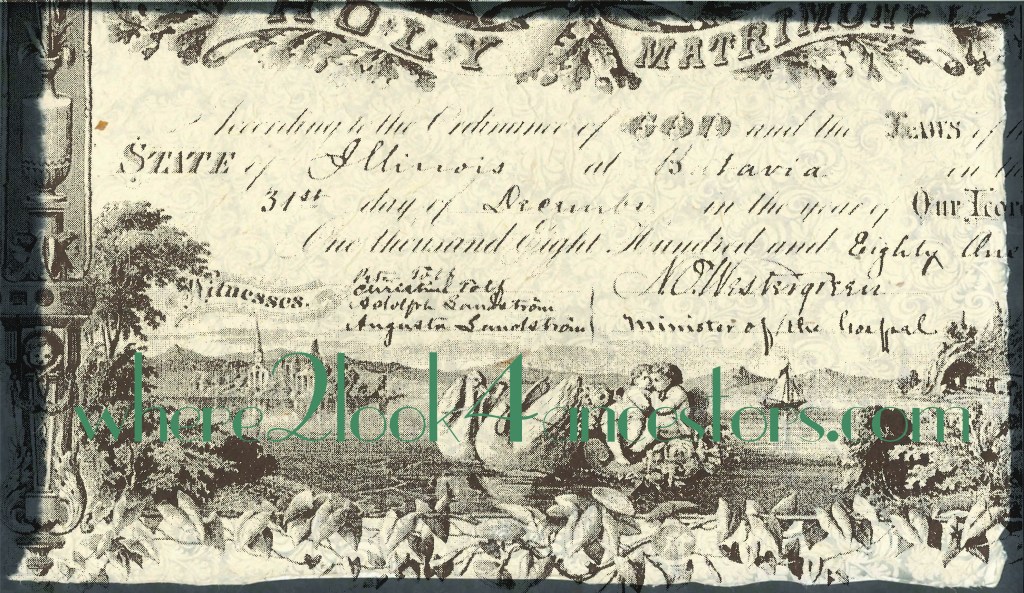 HOLY MATRIMONY
According to the Ordinance of GOD and the LAWS of the
STATE of Illinois at Batavia in the
31st day of December in the year of Our Lord
One thousand Eight Hundred and Eighty One
Witnesses.
Christine Tolf
Adolph Landström
Augusta Landström
N.O. Westergreen
Minister of the Gospel
where2look4ancestors.com